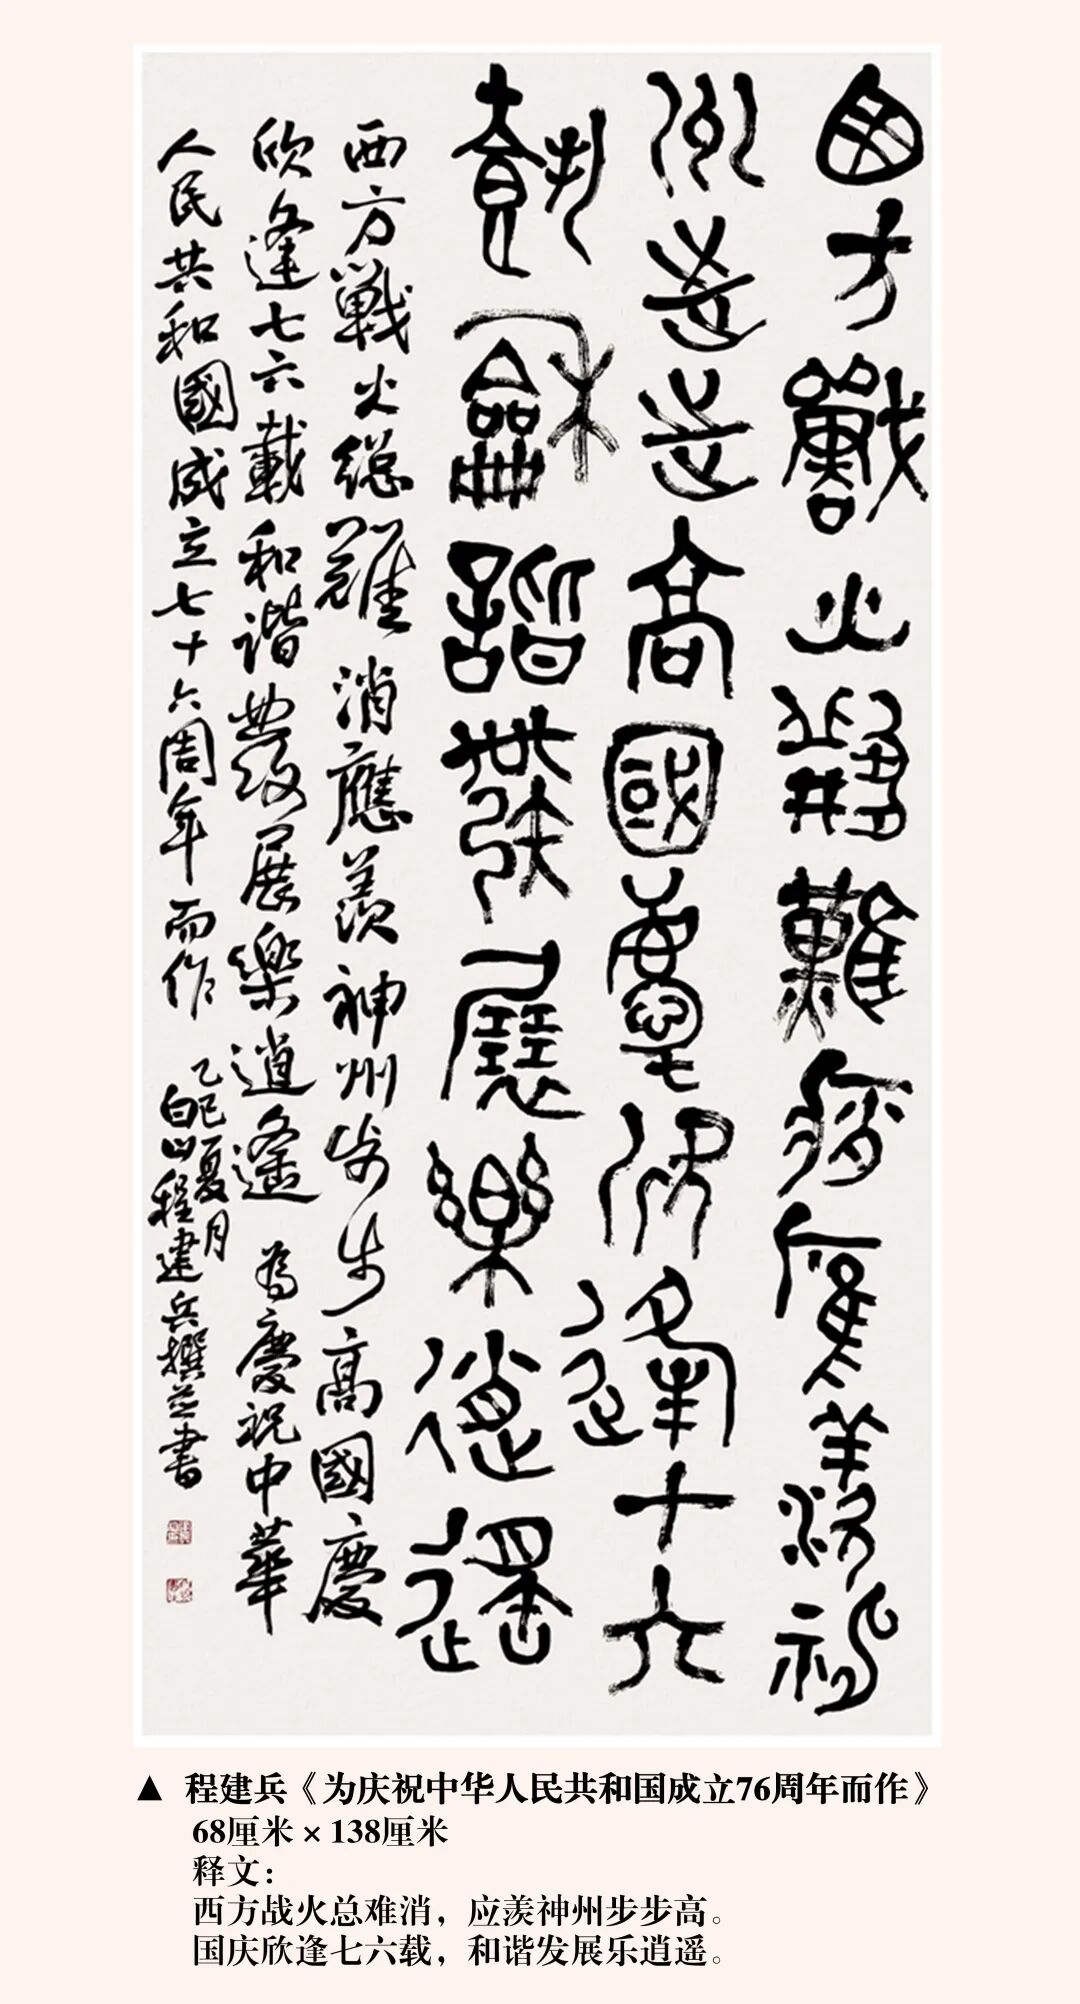 西方戰火總難消應羨神
州步步高國慶欣逢七六
載龢諧發展樂逍遙
西方戰火總難消應羨神州步步高國慶
欣逢七六載和諧發展樂逍遙 為慶祝中華
人民共和國成立七十六周年而作
乙巳夏月
白山程建兵撰並書
▲ 程建兵《为庆祝中华人民共和国成立76周年而作》
68厘米×138厘米
释文：
西方战火总难消，应羡神州步步高。
国庆欣逢七六载，和谐发展乐逍遥。